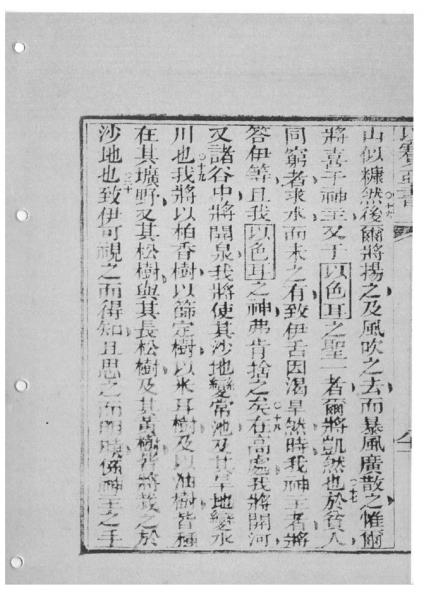 以賽亞書
山似糠然後爾將揚之及風吹之去而暴風廣散之惟爾
將喜于神主又于以色耳之聖一者爾將凱然也於貧人
同窮者求水而未之有致伊舌因渴旱然時我神主者將
答伊等且我以色耳之神弗肯捨之矣在高處我將開河
又諸谷中將開泉我將使其沙地變常池及其旱地變水
川也我將以柏香樹以篩定樹以米耳樹及以油樹皆種
在其壙野又其松樹與其長松樹及其黃楊皆將栽之於
沙地也致伊可視之而得知且思之而明曉係神主之手